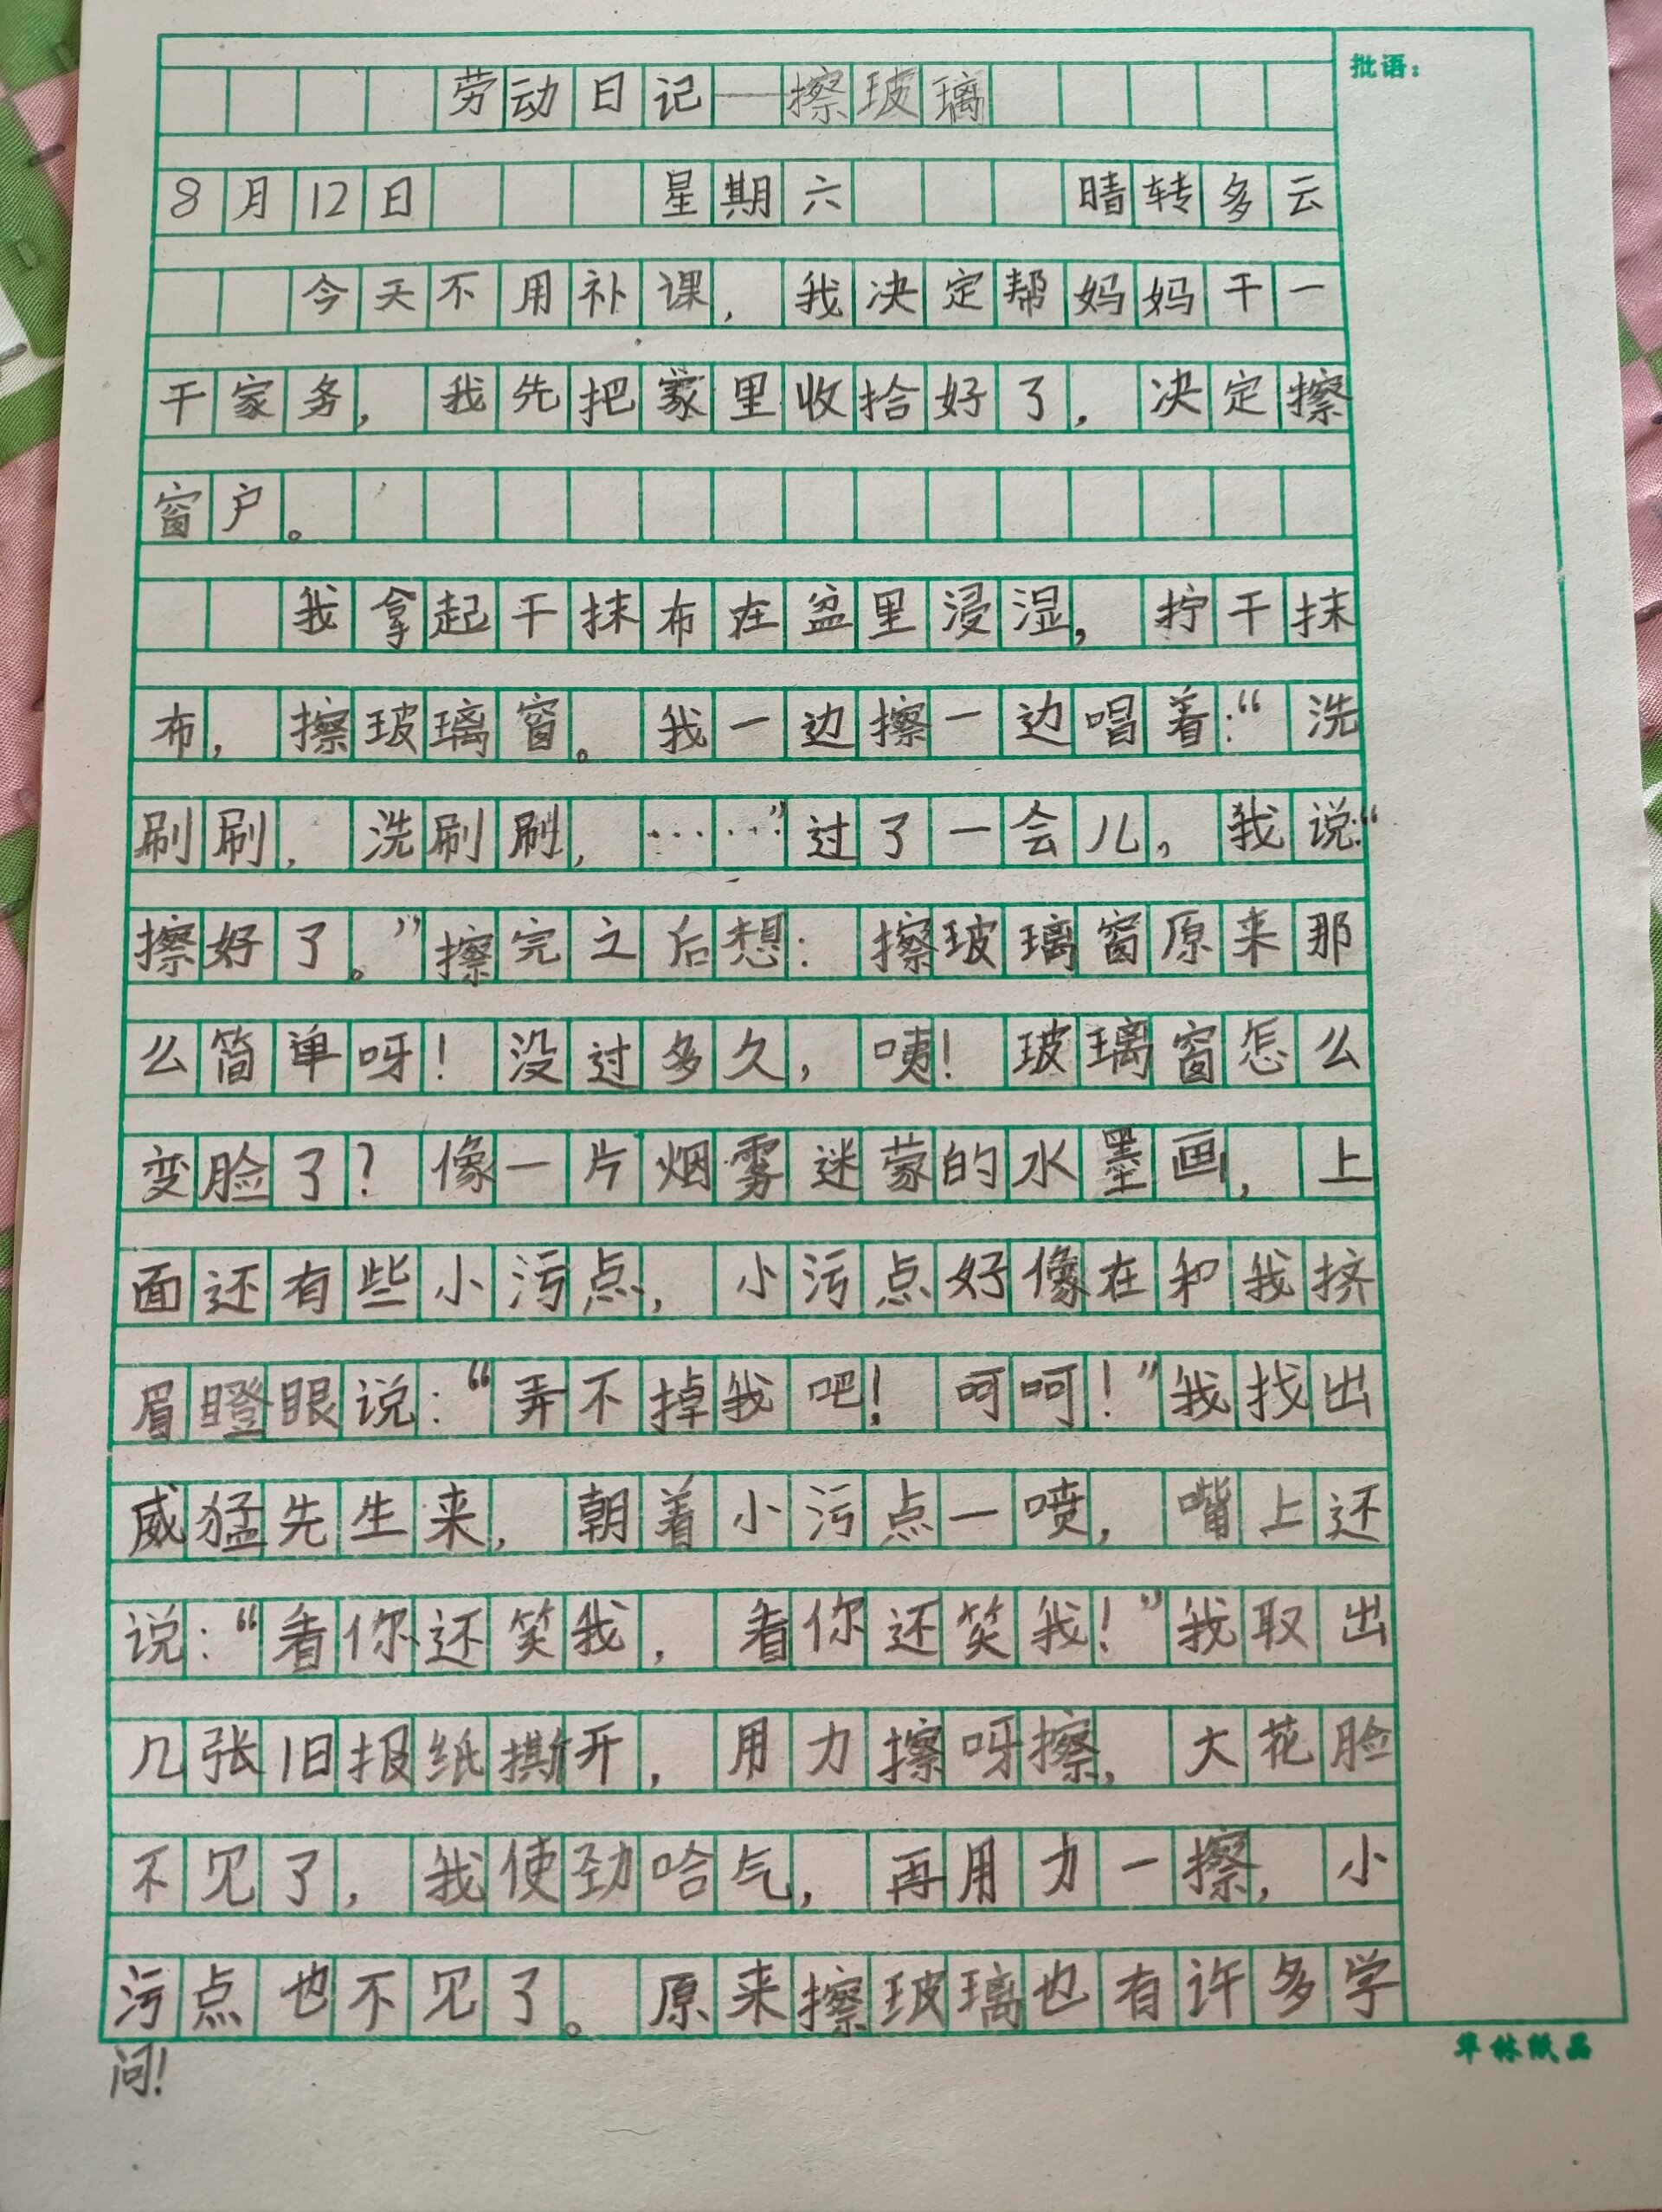 批语：
劳动日记——擦玻璃
8月12日 星期六 晴转多云
今天不用补课，我决定帮妈妈干一
干家务，我先把家里收拾好了，决定擦
窗户。
我拿起干抹布在盆里浸湿，拧干抹
布，擦玻璃窗。我一边擦一边唱着：“洗
刷刷，洗刷刷，……”过了一会儿，我说：“
擦好了。”擦完之后想：擦玻璃窗原来那
么简单呀！没过多久，咦！玻璃窗怎么
变脸了？像一片烟雾迷蒙的水墨画，上
面还有些小污点，小污点好像在和我挤
眉瞪眼说：“弄不掉我吧！呵呵！”我找出
威猛先生来，朝着小污点一喷，嘴上还
说：“看你还笑我，看你还笑我！”我取出
几张旧报纸撕开，用力擦呀擦，大花脸
不见了，我使劲哈气，再用力一擦，小
污点也不见了。原来擦玻璃也有许多学
问！
华林纸品